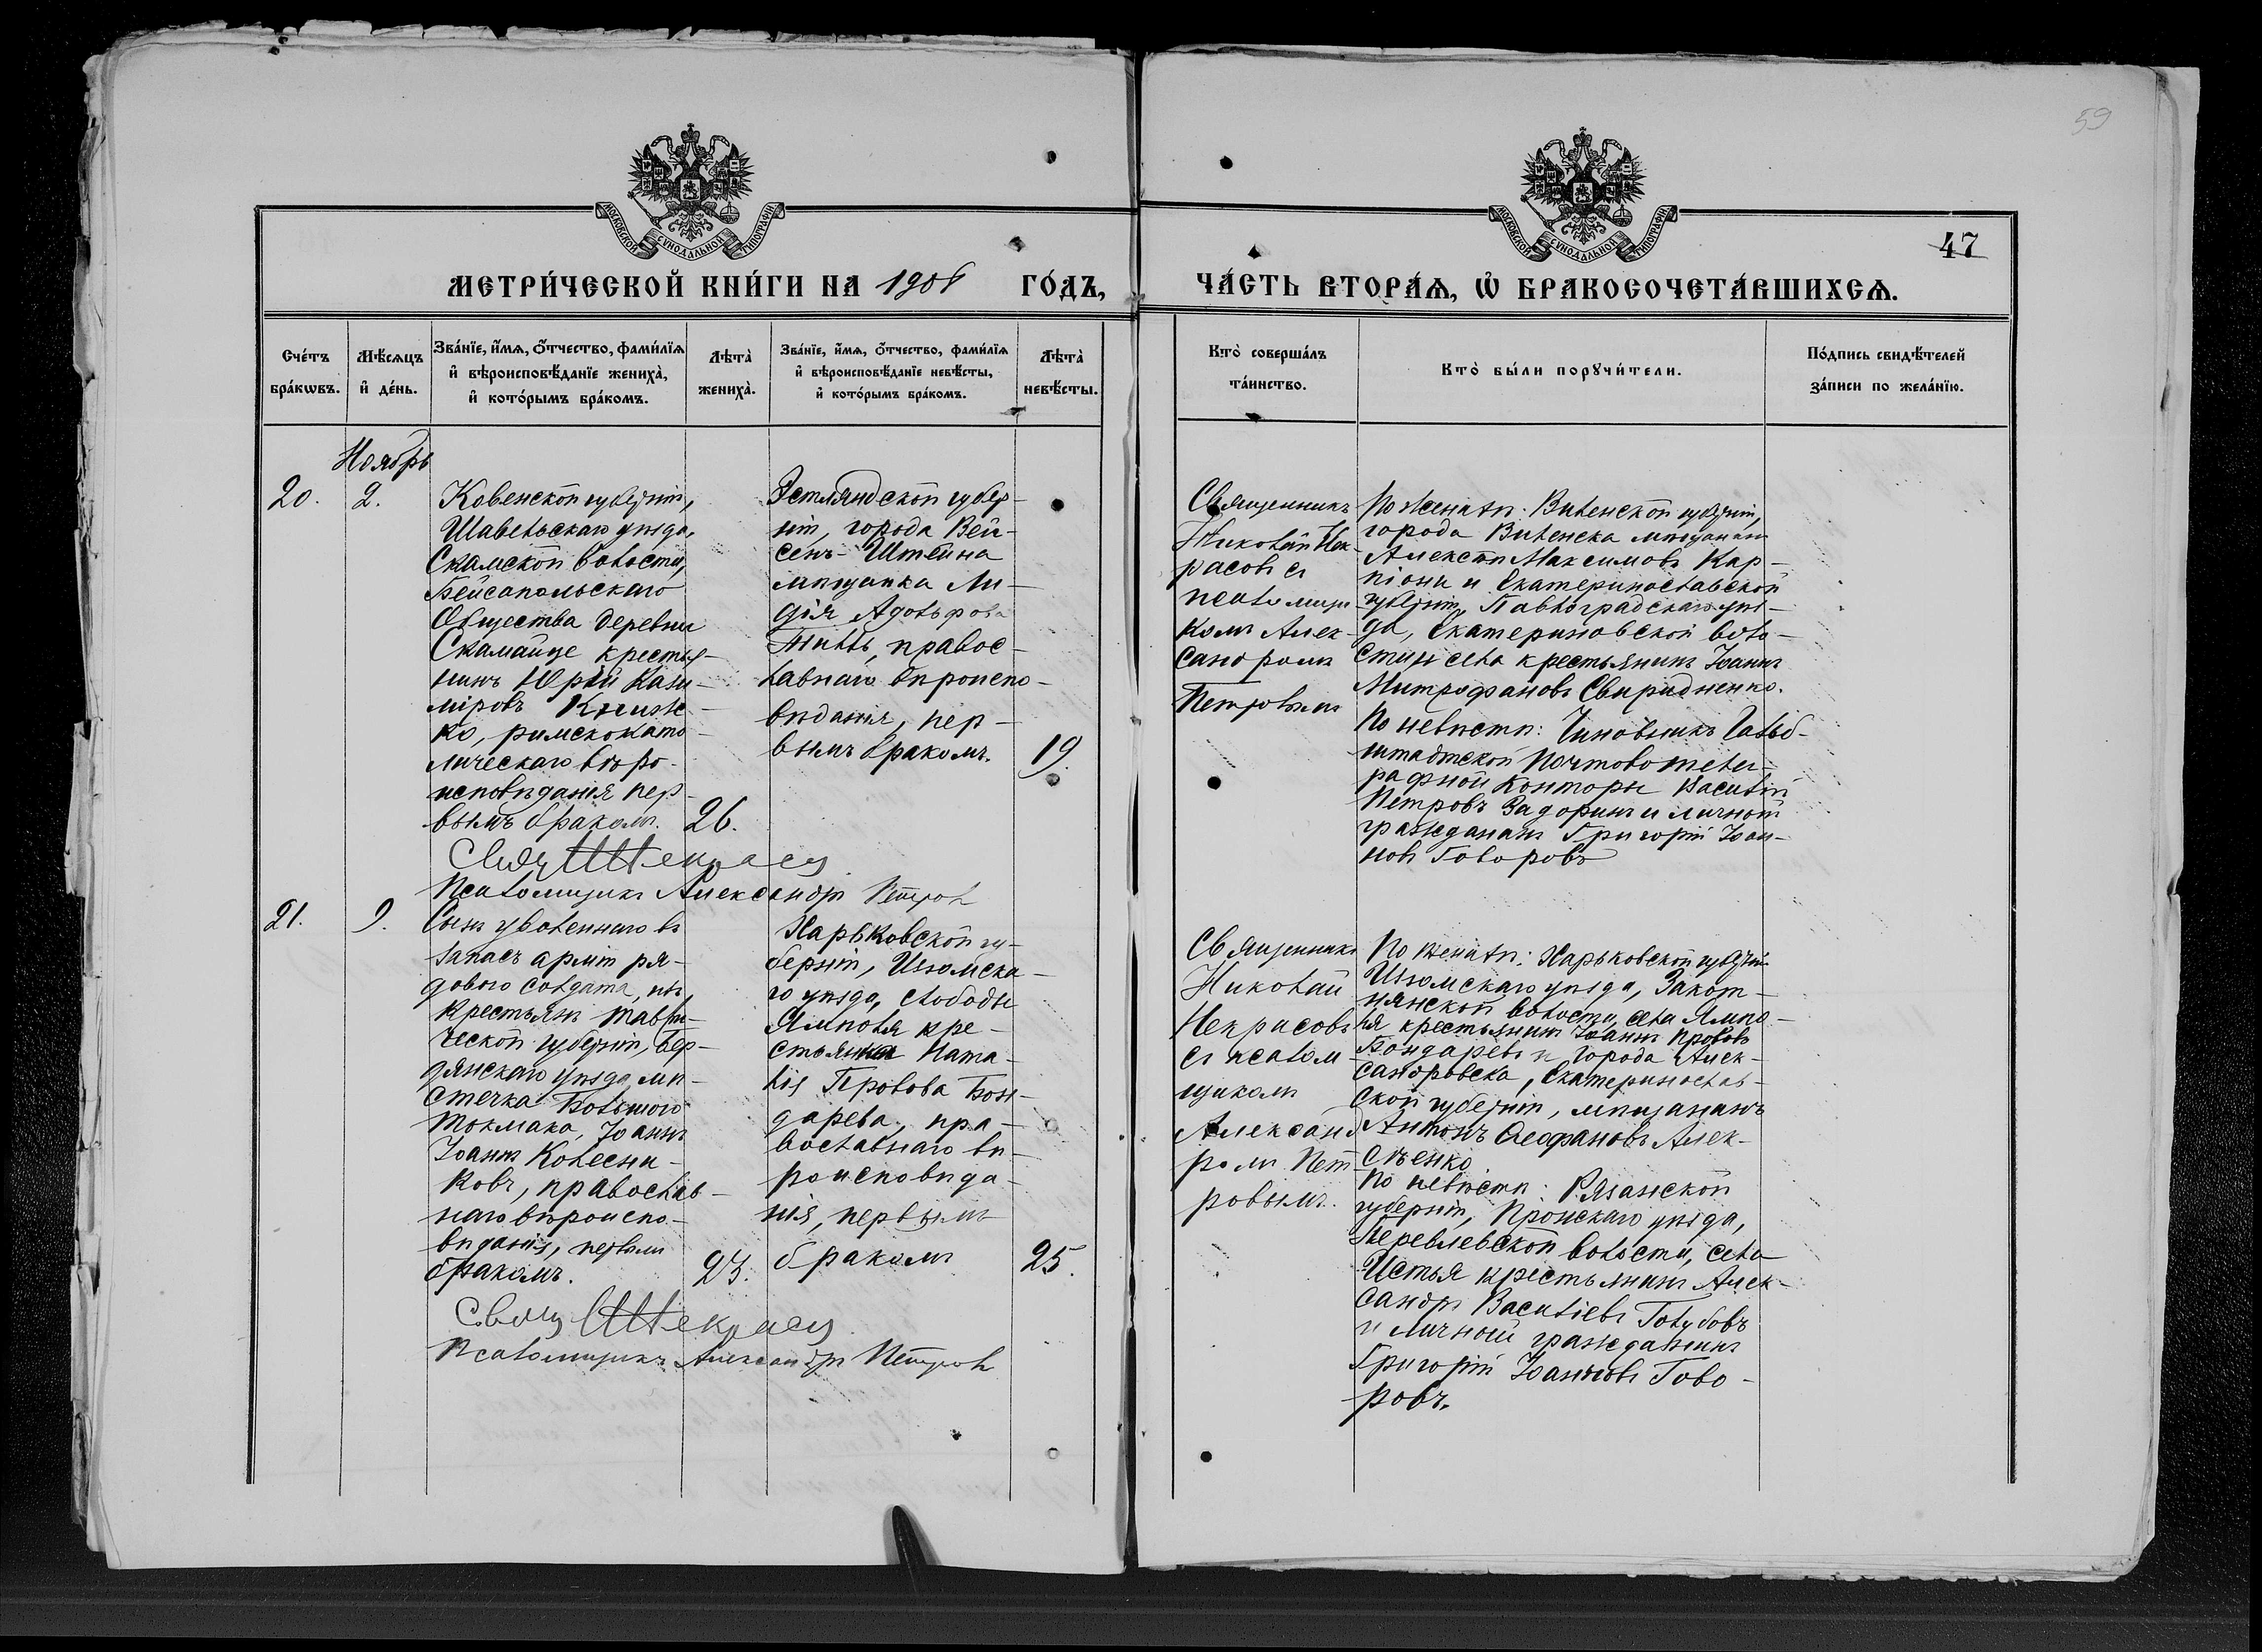 59
МОСКОВСКОЙ СѴНОДАЛЬНОЙ ТИПОГРАФІИ
МОСКОВСКОЙ СѴНОДАЛЬНОЙ ТИПОГРАФІИ
47
МЕТРИ́ЧЕСКОЙ КНИ́ГИ НА 1908 ГО́ДЪ,
ЧА́СТЬ ВТОРА́Ѧ, Ѽ БРАКОСОЧЕТА́ВШИХСѦ.
Сче́тъ
бра́кѡвъ.
Мѣ́сяцъ
и҆ де́нь.
Зва́нїе, и҆́мѧ, ѻ҆́тчество, фами́лїѧ
и҆ вѣроисповѣ́данїе жениха̀,
и҆ кото́рымъ бра́комъ.
Лѣта̀
жениха̀.
Зва́нїе, и҆́мѧ, ѻ҆́тчество, фами́лїѧ
и҆ вѣроисповѣ́данїе невѣ́сты,
и҆ кото́рымъ бра́комъ.
Лѣта̀
невѣ́сты.
Кто̀ соверша́лъ
та́инство.
Кто̀ бы́ли порꙋчи́тели.
По́дпись свидѣ́телей
за́писи по жела́нїю.
Ноябрь
20.
2.
Ковенской губерніи,
Шавельскаго уѣзда,
волости,
Общества деревни
Скамайце крестья-
нинъ Юрій Кази-
міровъ
ко, римскокато-
лическаго вѣро-
исповѣданія пер-
вымъ бракомъ.
26.
Эстляндской губер-
ніи, города Вей-
сенъ-Штейна
мѣщанка Ли-
дія Адольфова
православ-
лавнаго вѣроиспо-
вѣданія, пер-
вымъ бракомъ.
19.
Священникъ
Николай Нек-
расовъ съ
псаломщи
комъ Алек-
сандромъ
Петровымъ
По женихѣ: Виленской губерніи,
города Виленска мѣщанинъ
Алексѣй Максимовъ Кар-
піони и Екатеринославской
губерніи, Павлоградскаго уѣз-
да, Екатериновской воло-
сти и села крестьянинъ Іоаннъ
Митрофановъ Свиридненко.
По невѣстѣ: Чиновникъ Гальб-
штадтской Почтово телег-
рафной Конторы Василій
Петровъ Задоринъ и личной
гражданинъ Григорій Іоан-
новъ Говоровъ
Свящ Некрасов
Псаломщикъ Александръ Петров
21.
9.
Сынъ уволеннаго въ
запасъ арміи ря-
дового солдата, изъ
крестьянъ Таври-
ческой губерніи, Бер-
дянскаго уѣзда мѣ-
стечка Большого
Токмака, Іоаннъ
Іоанн Колесни-
ковъ, православ-
наго вѣроиспо-
вѣданія, первымъ
бракомъ.
23.
Харьковской гу-
берніи, Изюмска-
го уѣзда, слободы
Ямполя кре-
стьянка Ната-
лія Провова Бон-
дарева, пра-
вославнаго вѣ-
роисповѣда-
нія, первымъ
бракомъ
25.
Священникъ
Николай
Некрасовъ
съ псалом-
щикомъ
Александ
ромъ Пет-
ровымъ.
По женихѣ: Харьковской губерніи
Изюмскаго уѣзда, Закот-
нянской волости, села Ямпо-
ля крестьянинъ Іоаннъ Прововъ
Бондаревъ и города Алек-
сандровска, Екатеринослав-
ской губерніи, мѣщанинъ
Антонъ Ѳеофановъ Алек-
сѣенко.
По невѣстѣ: Рязанской
губерніи, Пронскаго уѣзда,
Перевлевской волости, села
Истья крестьянинъ Алек-
сандръ Василіевъ Голубовъ
и личной гражданинъ
Григорій Іоанновъ Гово-
ровъ.
Свящ Некрасов
Псаломщикъ Александръ Петров